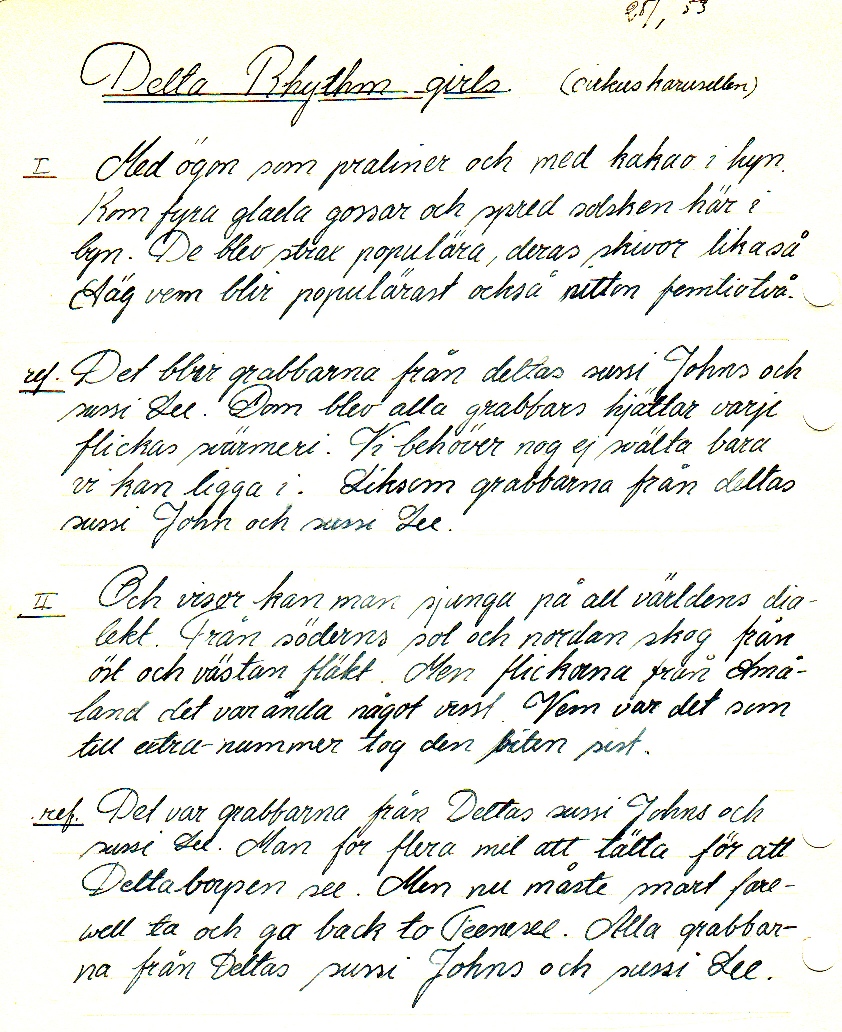 25/1 53
Delta Rhythm girls (cirkuskarusellen)
I Med ögon som praliner och med kakao i hyn.
Kom fyra glada gossar och spred solsken här i
byn. De blev strax populära, deras skivor likaså
Säg vem blir populärast också nitton femtiotvå.
ref. Det blir grabbarna från deltas sussi Johns och
sussi Lee. Dom blev alla grabbars hjältar varje
flickas svärmeri. Vi behöver nog ej svälta bara
vi kan ligga i. Liksom grabbarna från deltas
sussi John och sussi Lee.
II Och visor kan man sjunga på all världens dia-
lekt. Från söderns sol och nordan skog från
öst och västan fläkt. Men flickorna från Små-
land det var ända något visst. Vem var det som
till extra-nummer tog den biten sist.
ref. Det var grabbarna från Deltas sussi Johns och
sussi Lee. Man för flera mil att tälta för att
Deltaborpen see. Men nu måste snart fare-
well ta och ga back to Teenesee. Alla grabbar-
na från Deltas sussi Johns och sussi Lee.